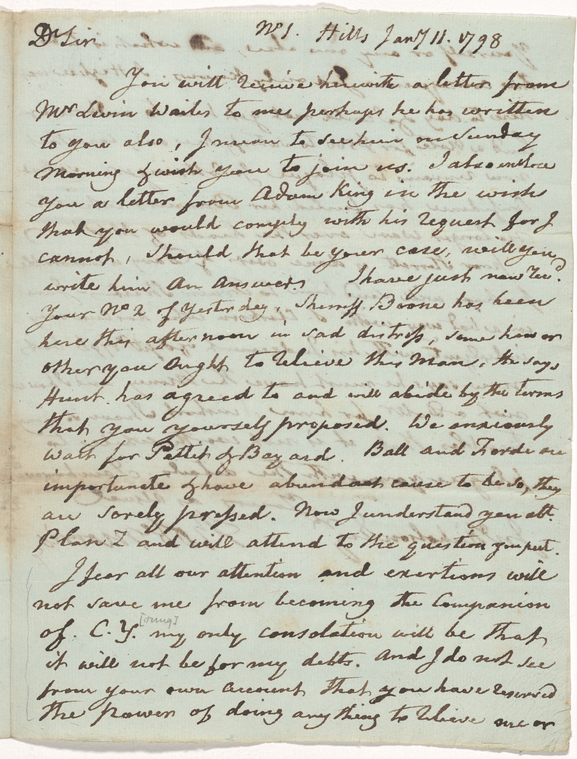 Dr Sir
No 1. Hills Jany 11. 1798
You will receive herewith a letter from
Mr Levin Wailes to me perhaps he has written
to you also, I mean to see him on Sunday
Morning & wish you to join us. I also inclose
you a letter from Adam King in the wish
that you would comply with his request for I
cannot, should that be your case, will you
write him an answer. I have just now Recd
Your No 2 of Yesterday, Sheriff Boone has been
here this afternoon in sad distress, some how or
other you ought to relieve this Man, He says
Hunt has agreed to and will abide by the terms
that you yourself proposed. We anxiously
wait for Pettit & Bayard. Ball and Forde are
importunate & have abundant cause to be so, they
are sorely pressed. Now I understand you abt
Plan Z and will attend to the question you put.
I fear all our attention and exertions will
not save me from becoming the Companion
of C. Y. [oung] my only consolation will be that
it will not be for my debts. And I do not see
from your own account that you have reserved
the power of doing any thing to relieve me or